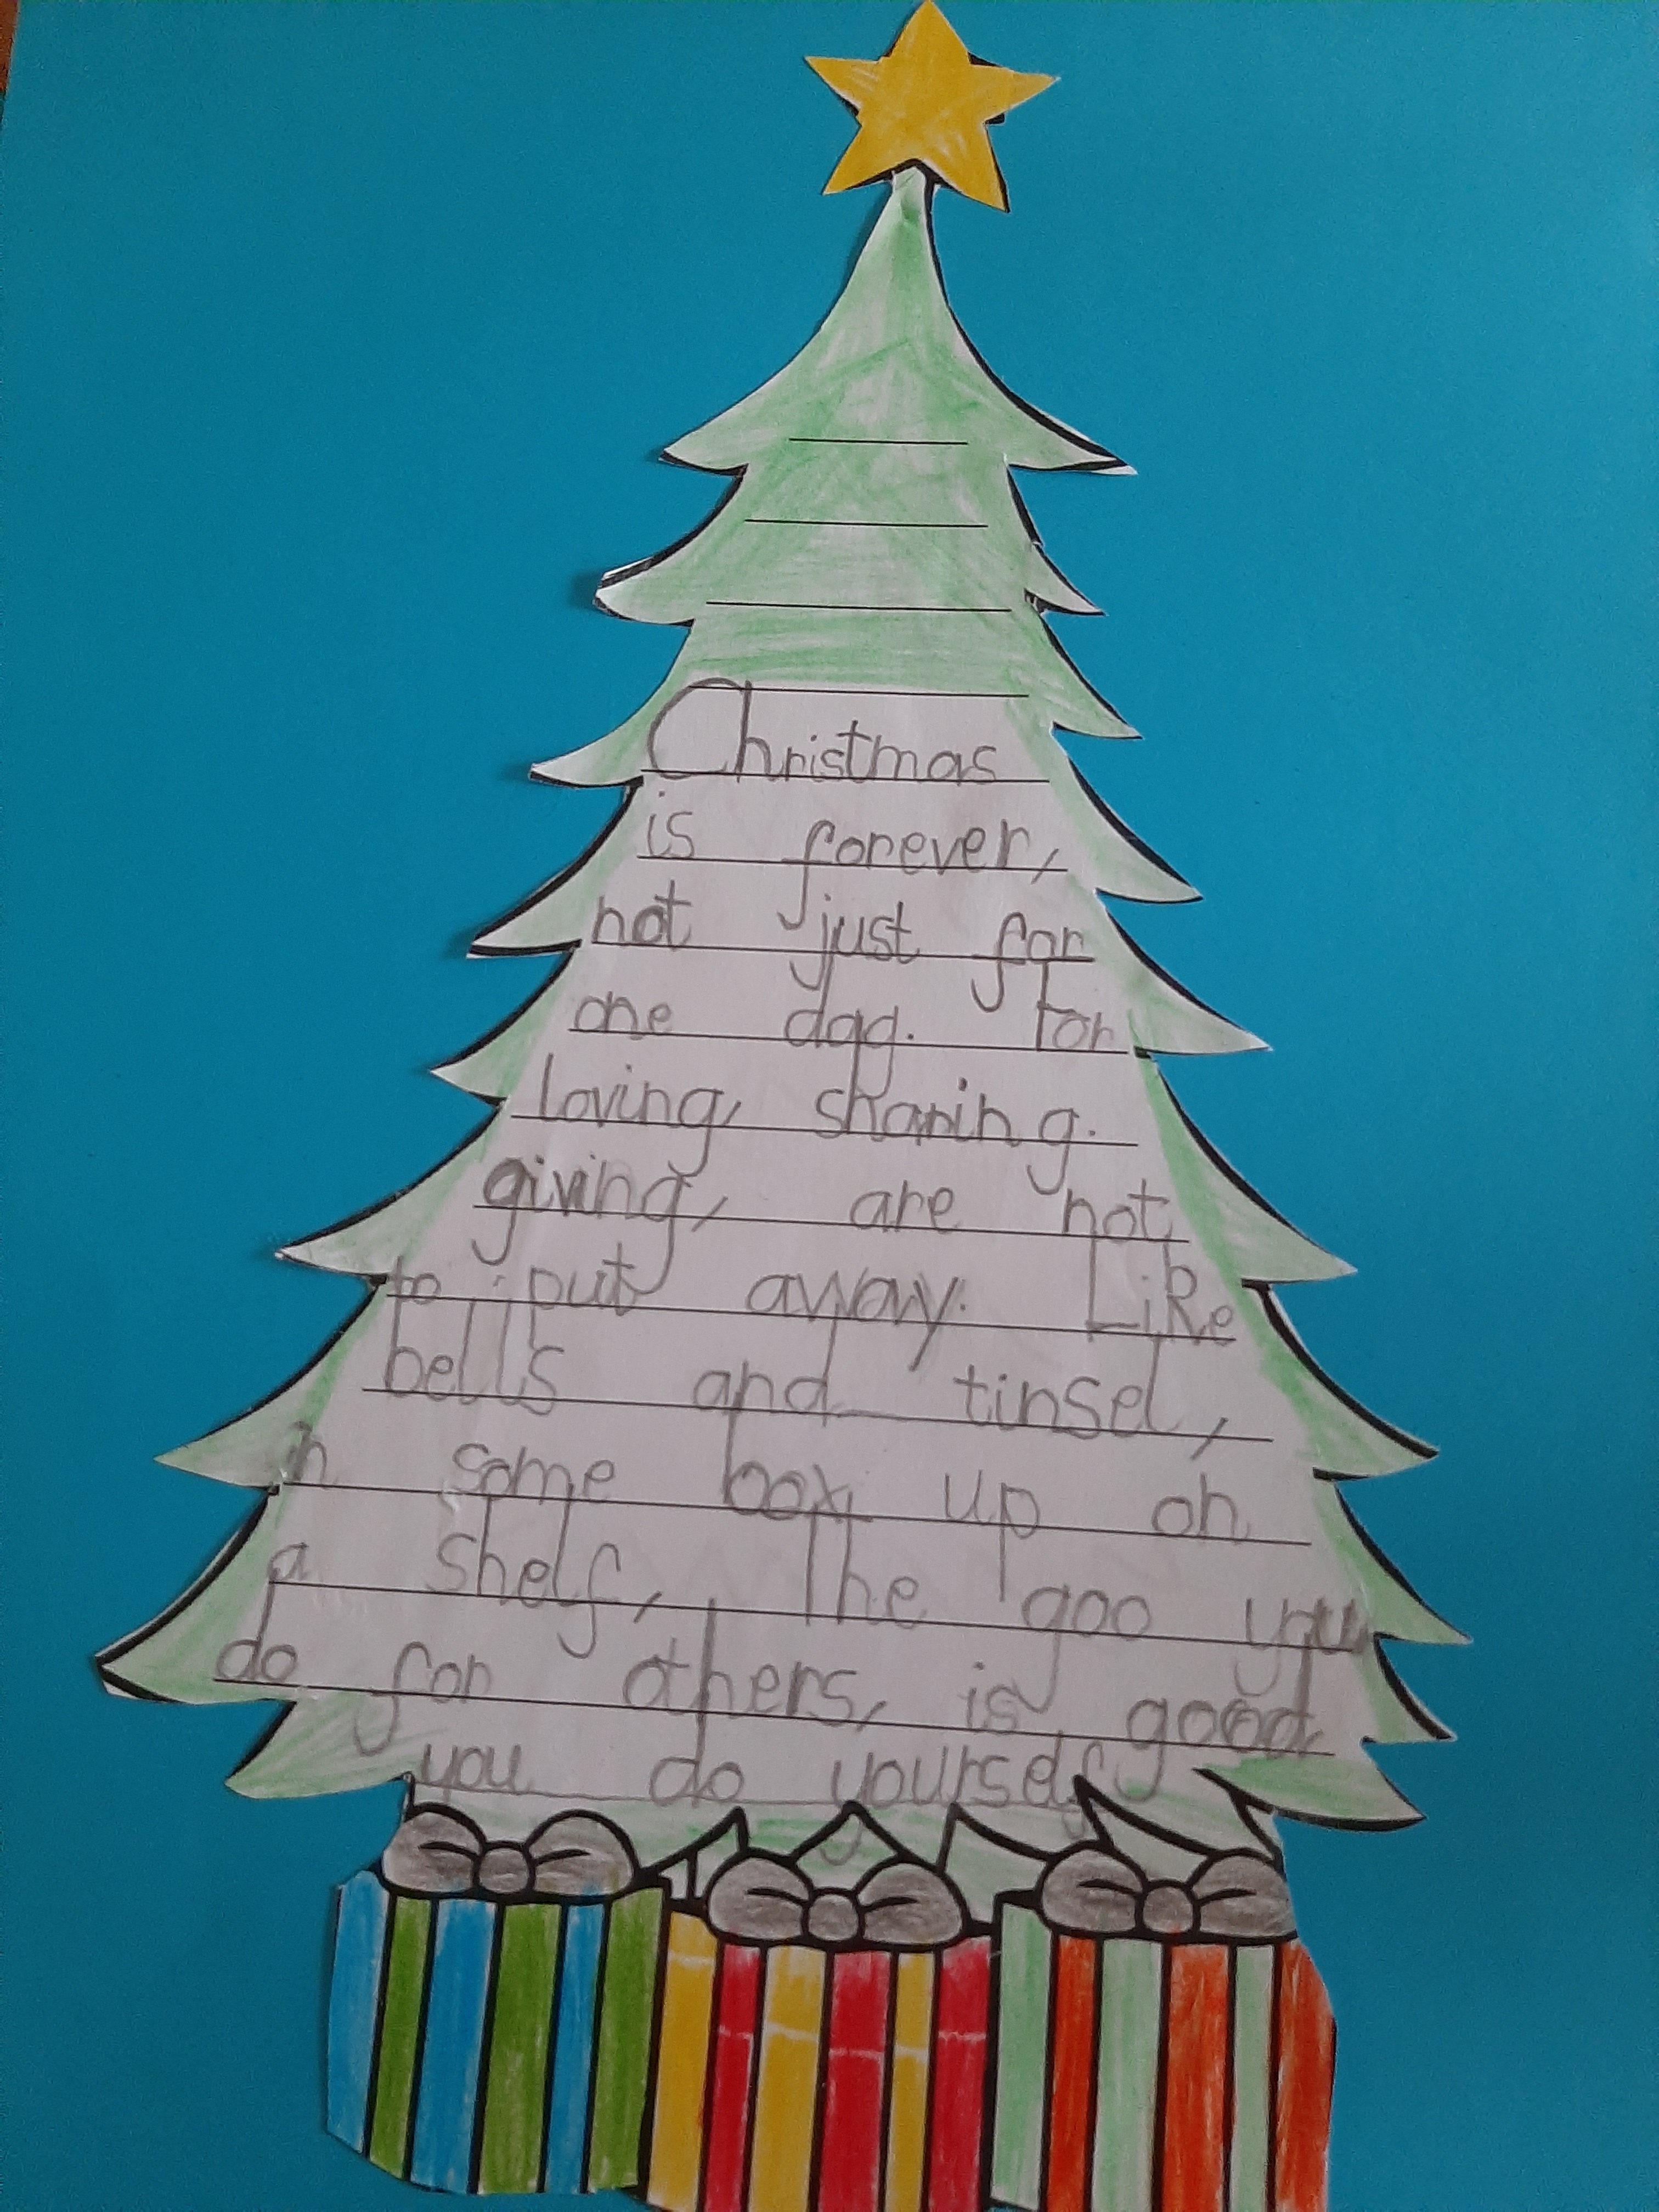 Christmas
is forever,
not just for
one day. For
loving, sharing.
giving, are not
to put away. Like
bells and tinsel,
n some box up on
a shelf, The goo you
do for others, is good
you do yourself